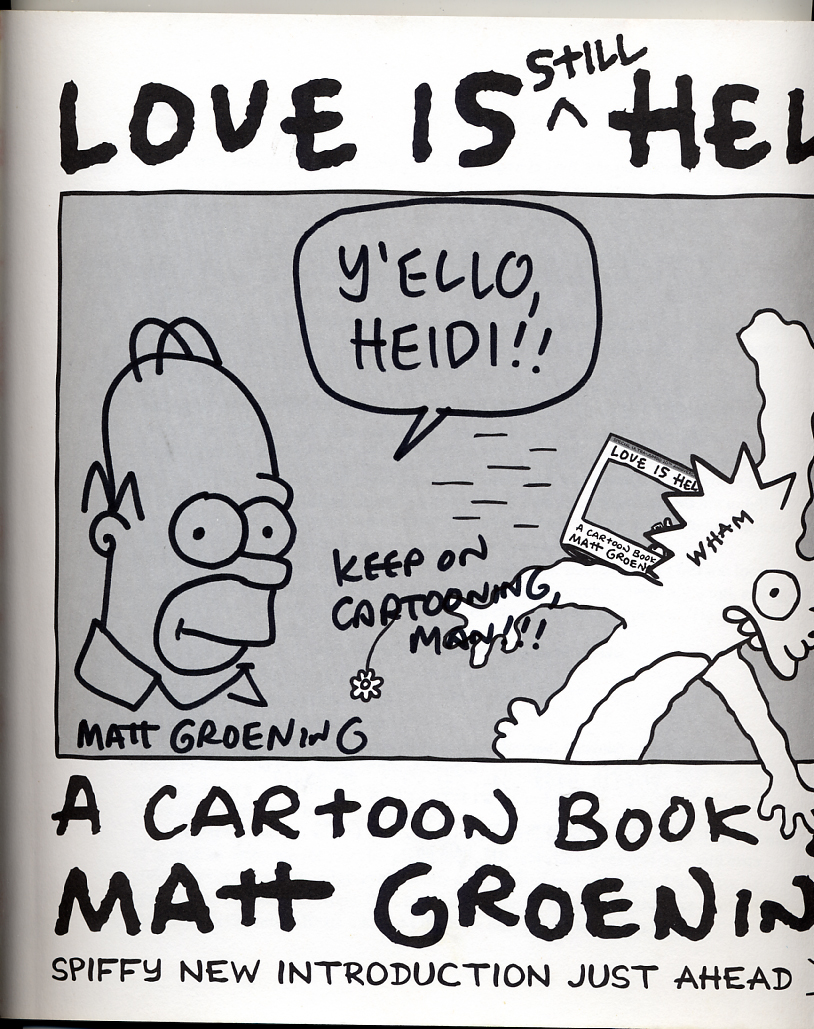 STILL
LOVE IS ^ HEL
Y'ELLO,
HEIDI!!
LOVE IS HEL
A CARTOON BOOK
MATT GROEN
WHAM
KEEP ON
CARTOONING,
MAN!!!
MATT GROENING
A CARTOON BOOK
MATT GROENIN
SPIFFY NEW INTRODUCTION JUST AHEAD